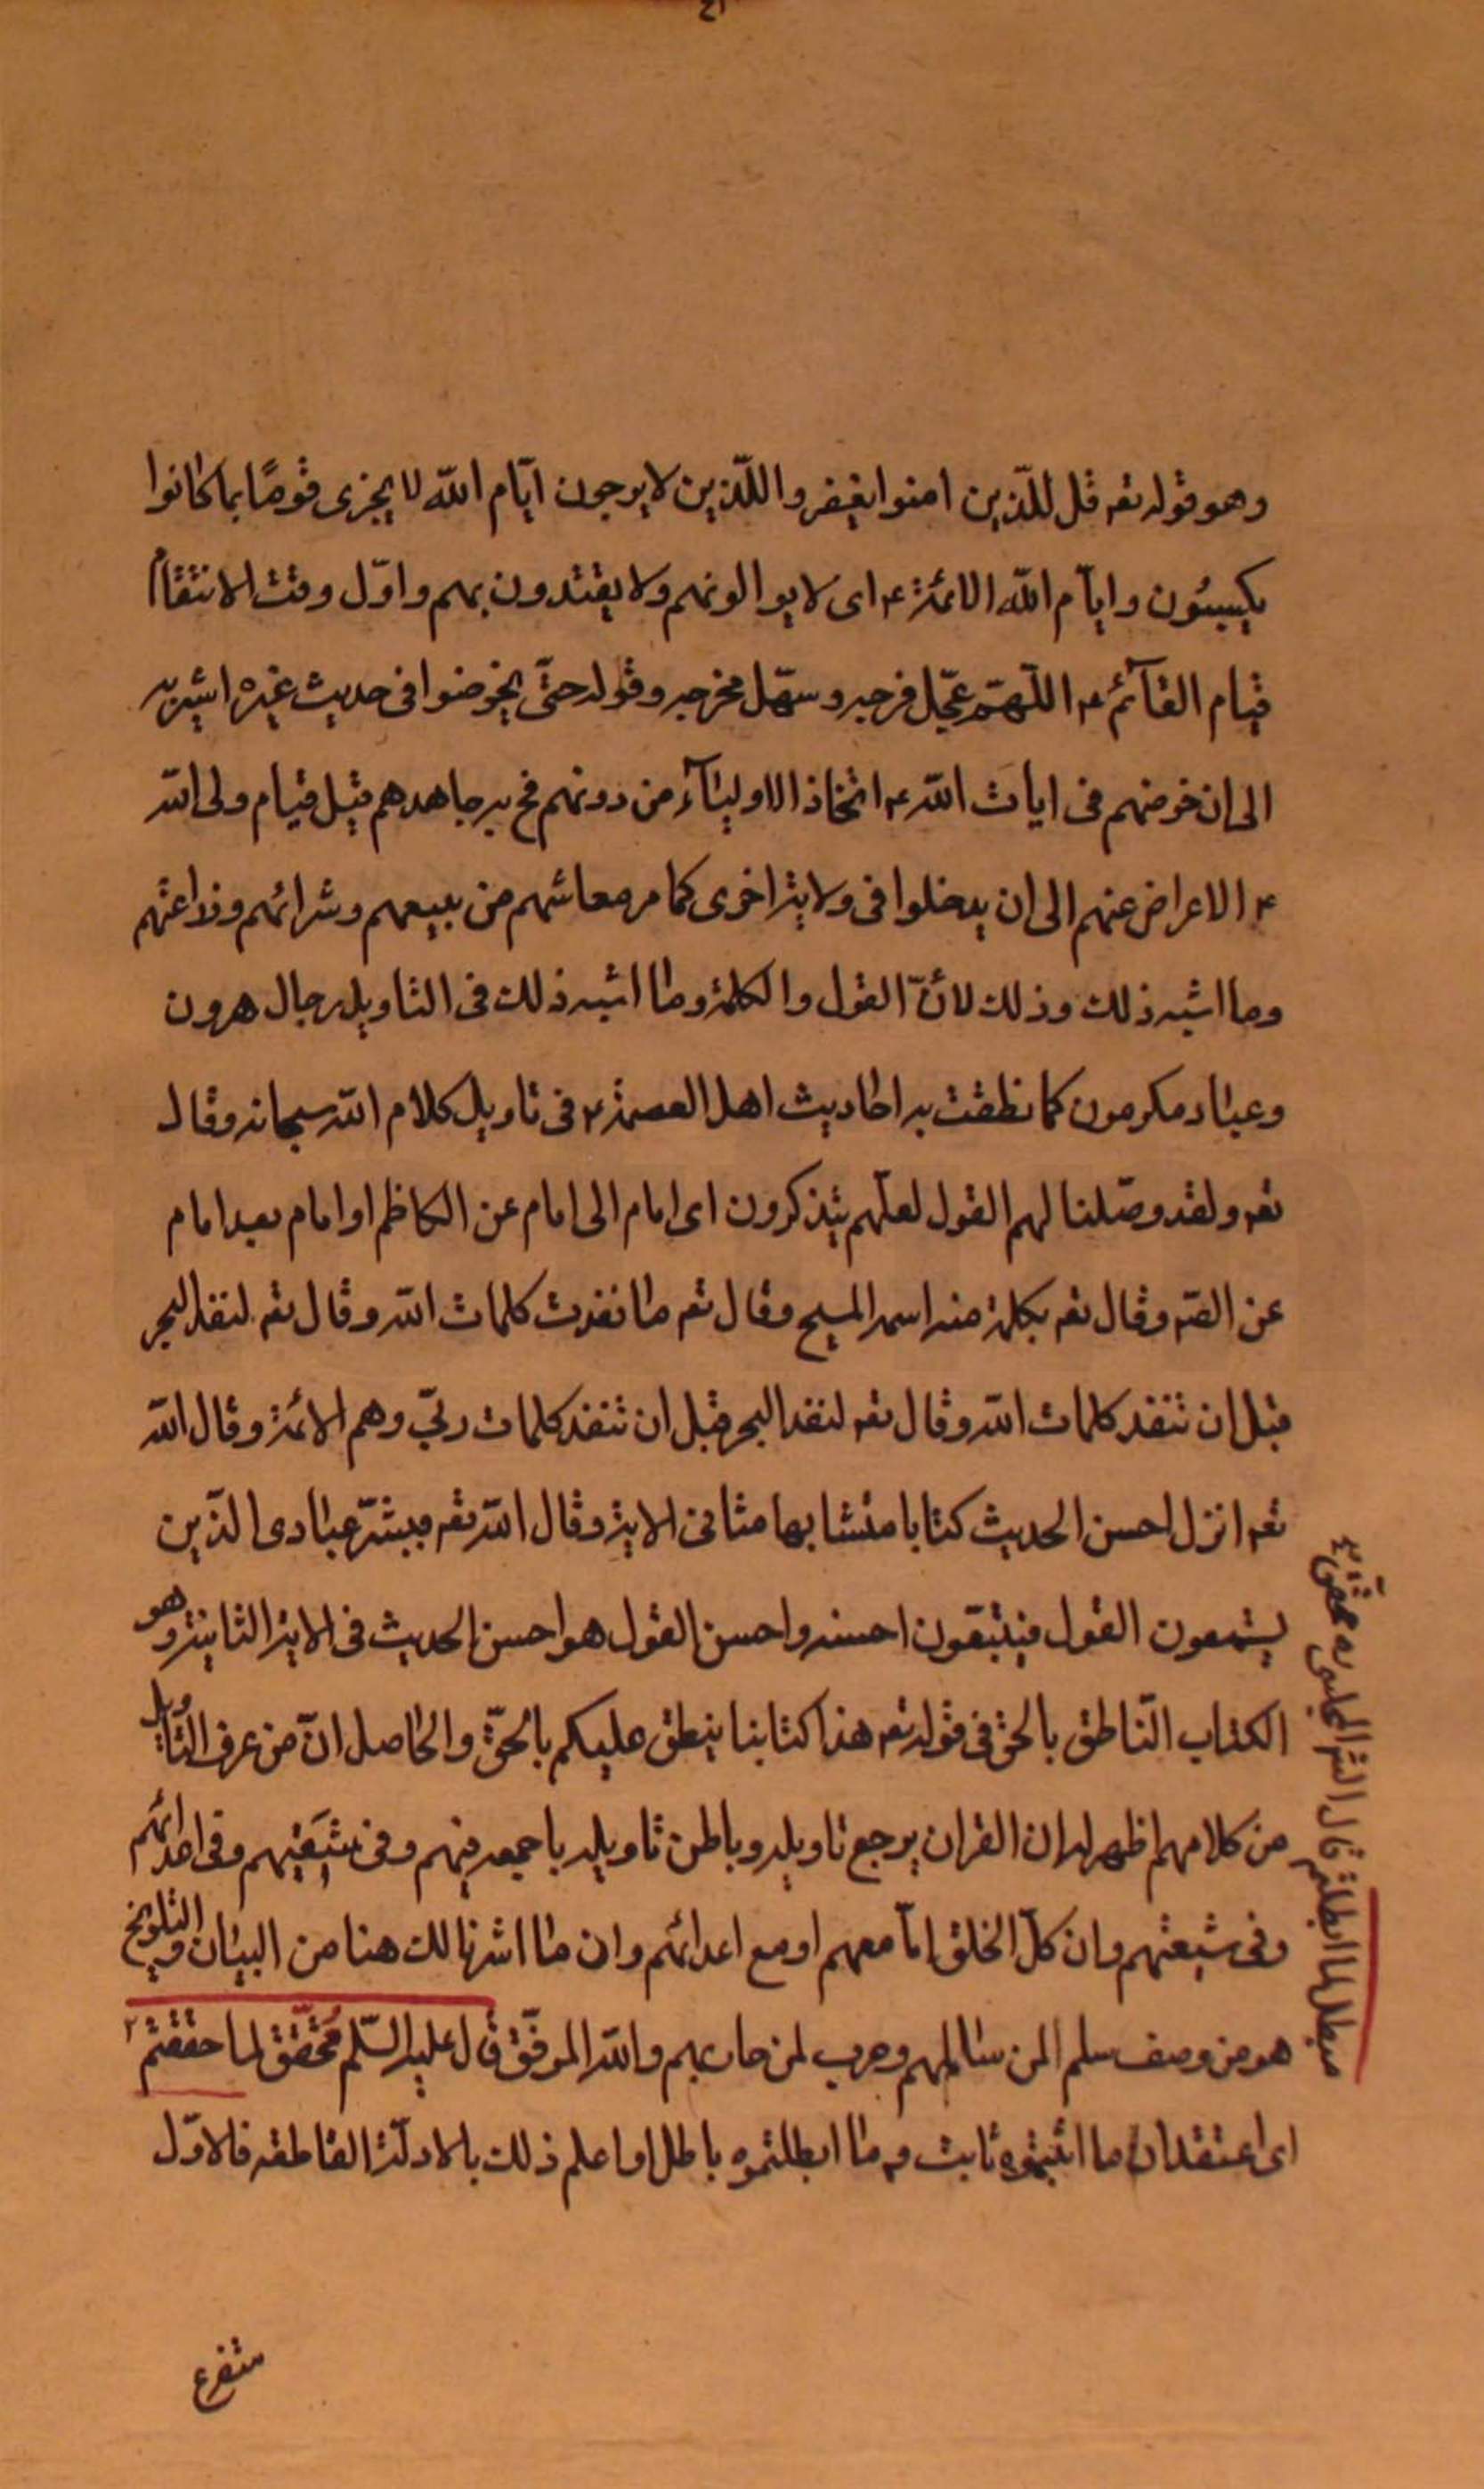 وهو قوله تعه قل للّذين امنوا يغفروا للّذين لا يرجون ايّام اللّه لا يجزى قومًا بما كانوا
يكسبون وايآم اللّه الائمّة ع اى لا يوالونهم ولا يقتدون بهم واوّل وقت الانتقام
قيام القآئم ع اللّهمّ عجّل فرجه وسهّل مخرجه وقوله حتّى يخوضوا فى حديث غيره اشير به
الى ان خوضهم فى ايات اللّه ع اتّخاذ الاوليآء من دونهم فح يرجاهدهم قبل قيام ولى اللّه
ع الاعراض عنهم الى ان يدخلوا فى ولاية اخرى كما مر معاشهم من بيعهم وشرائهم وزراعتهم
وما اشبه ذلك وذلك لانّ القول والكلمة وما اشبه ذلك فى التاويل رجال هرون
وعباد مكرمون كما نطقت به احاديث اهل العصمة ع فى تاويل كلام اللّه سبحانه وقال
تعه ولقد وصّلنا لهم القول لعلّهم يتذكرون اى امام الى امام عن الكاظم او امام بعد امام
عن الصّه وقال تعه بكلمة منه اسمه المسيح وقال تعه ما نفدت كلمات اللّه وقال تعه لنفد البحر
قبل ان تنفد كلمات اللّه وقال تعه لنفد البحر قبل ان تنفد كلمات ربّي وهم الائمّة وقال اللّه
تعه انزل احسن الحديث كتابا متشابها مثانى الاية وقال اللّه تعه فبشّر عبادى الّذين
يستمعون القول فيتّبعون احسنه واحسن القول هو احسن الحديث فى الاية الثانية وهو
الكتاب النّاطق بالحق فى قوله تعه هذا كتابنا ينطق عليكم بالحقّ والحاصل انّ من عرف التّاويل
من كلامهم اظهر له ان القران يرجع تاويله وباطن تاويله باجمعه فيهم وفى شيعتهم وفى اعدائهم
وفى شيعتهم وان كلّ الخلق امّا معهم او مع اعدائهم وان ما اشرنا لك هنا من البيان والتلويح
هو من وصف سلم لمن سالمهم وحرب لمن حاربهم واللّه الموفّق قال عليه السّلم مُحَقّق لما حقّقتم ٢
اى اعتقد ان ما اثبتموه ثابت وما ابطلتموه باطل او اعلم ذلك بالادلّة القاطعة فالاوّل
مبطل لما ابطلتم قال الشّ المجلسى ره محقّق
متفرع